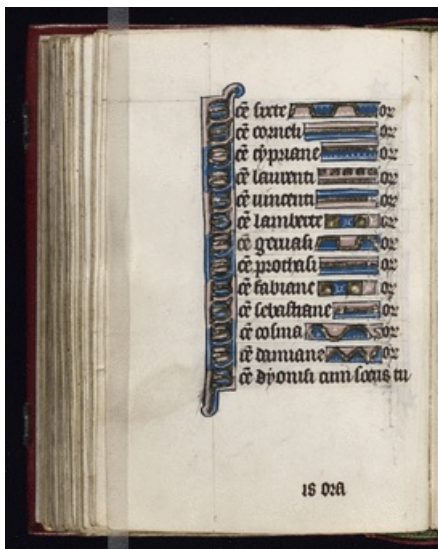 cē sixte or
cē corneli or
cē cypriane or
cē laurenti or
cē uincenti or
cē lamberte or
cē geruasi or
cē prothasi or
cē fabiane or
cē sebastiane or
cē cosma or
cē damiane or
cē dyonisi cum socus tu
is ora